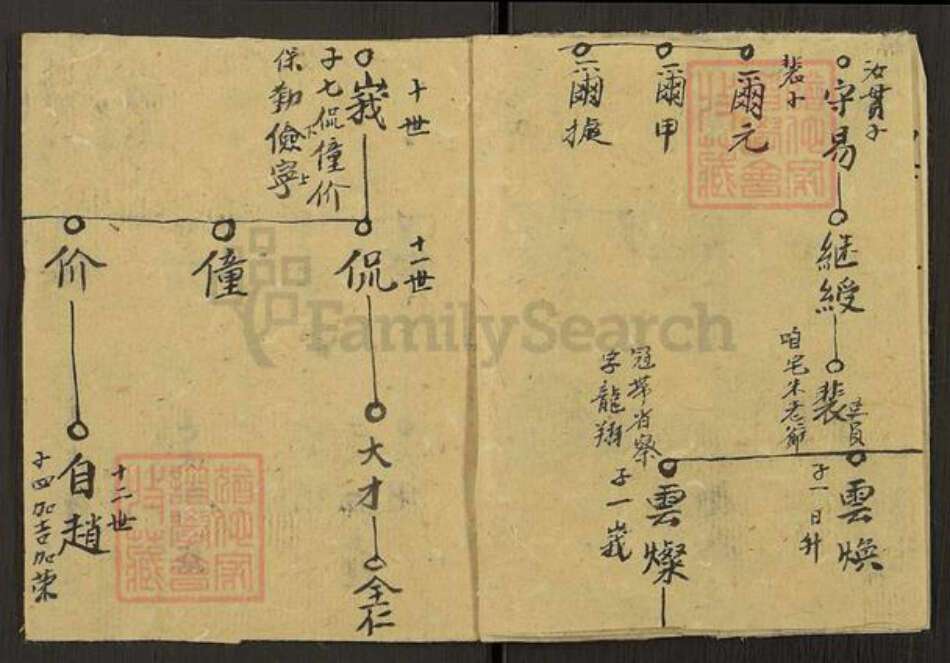 汝貫子
守易
裴卜
爾元
爾甲
爾據
継綬
裴
生員
咱宅朱老爺
雲煥
子一日升
雲燦
冠帶省祭
字龍翔
子一峩
十世
峩
子七侃僮价
保勤儉寧
十一世
侃
僮
价
大才
全仁
十二世
自趙
子四加吉加榮
FamilySearch